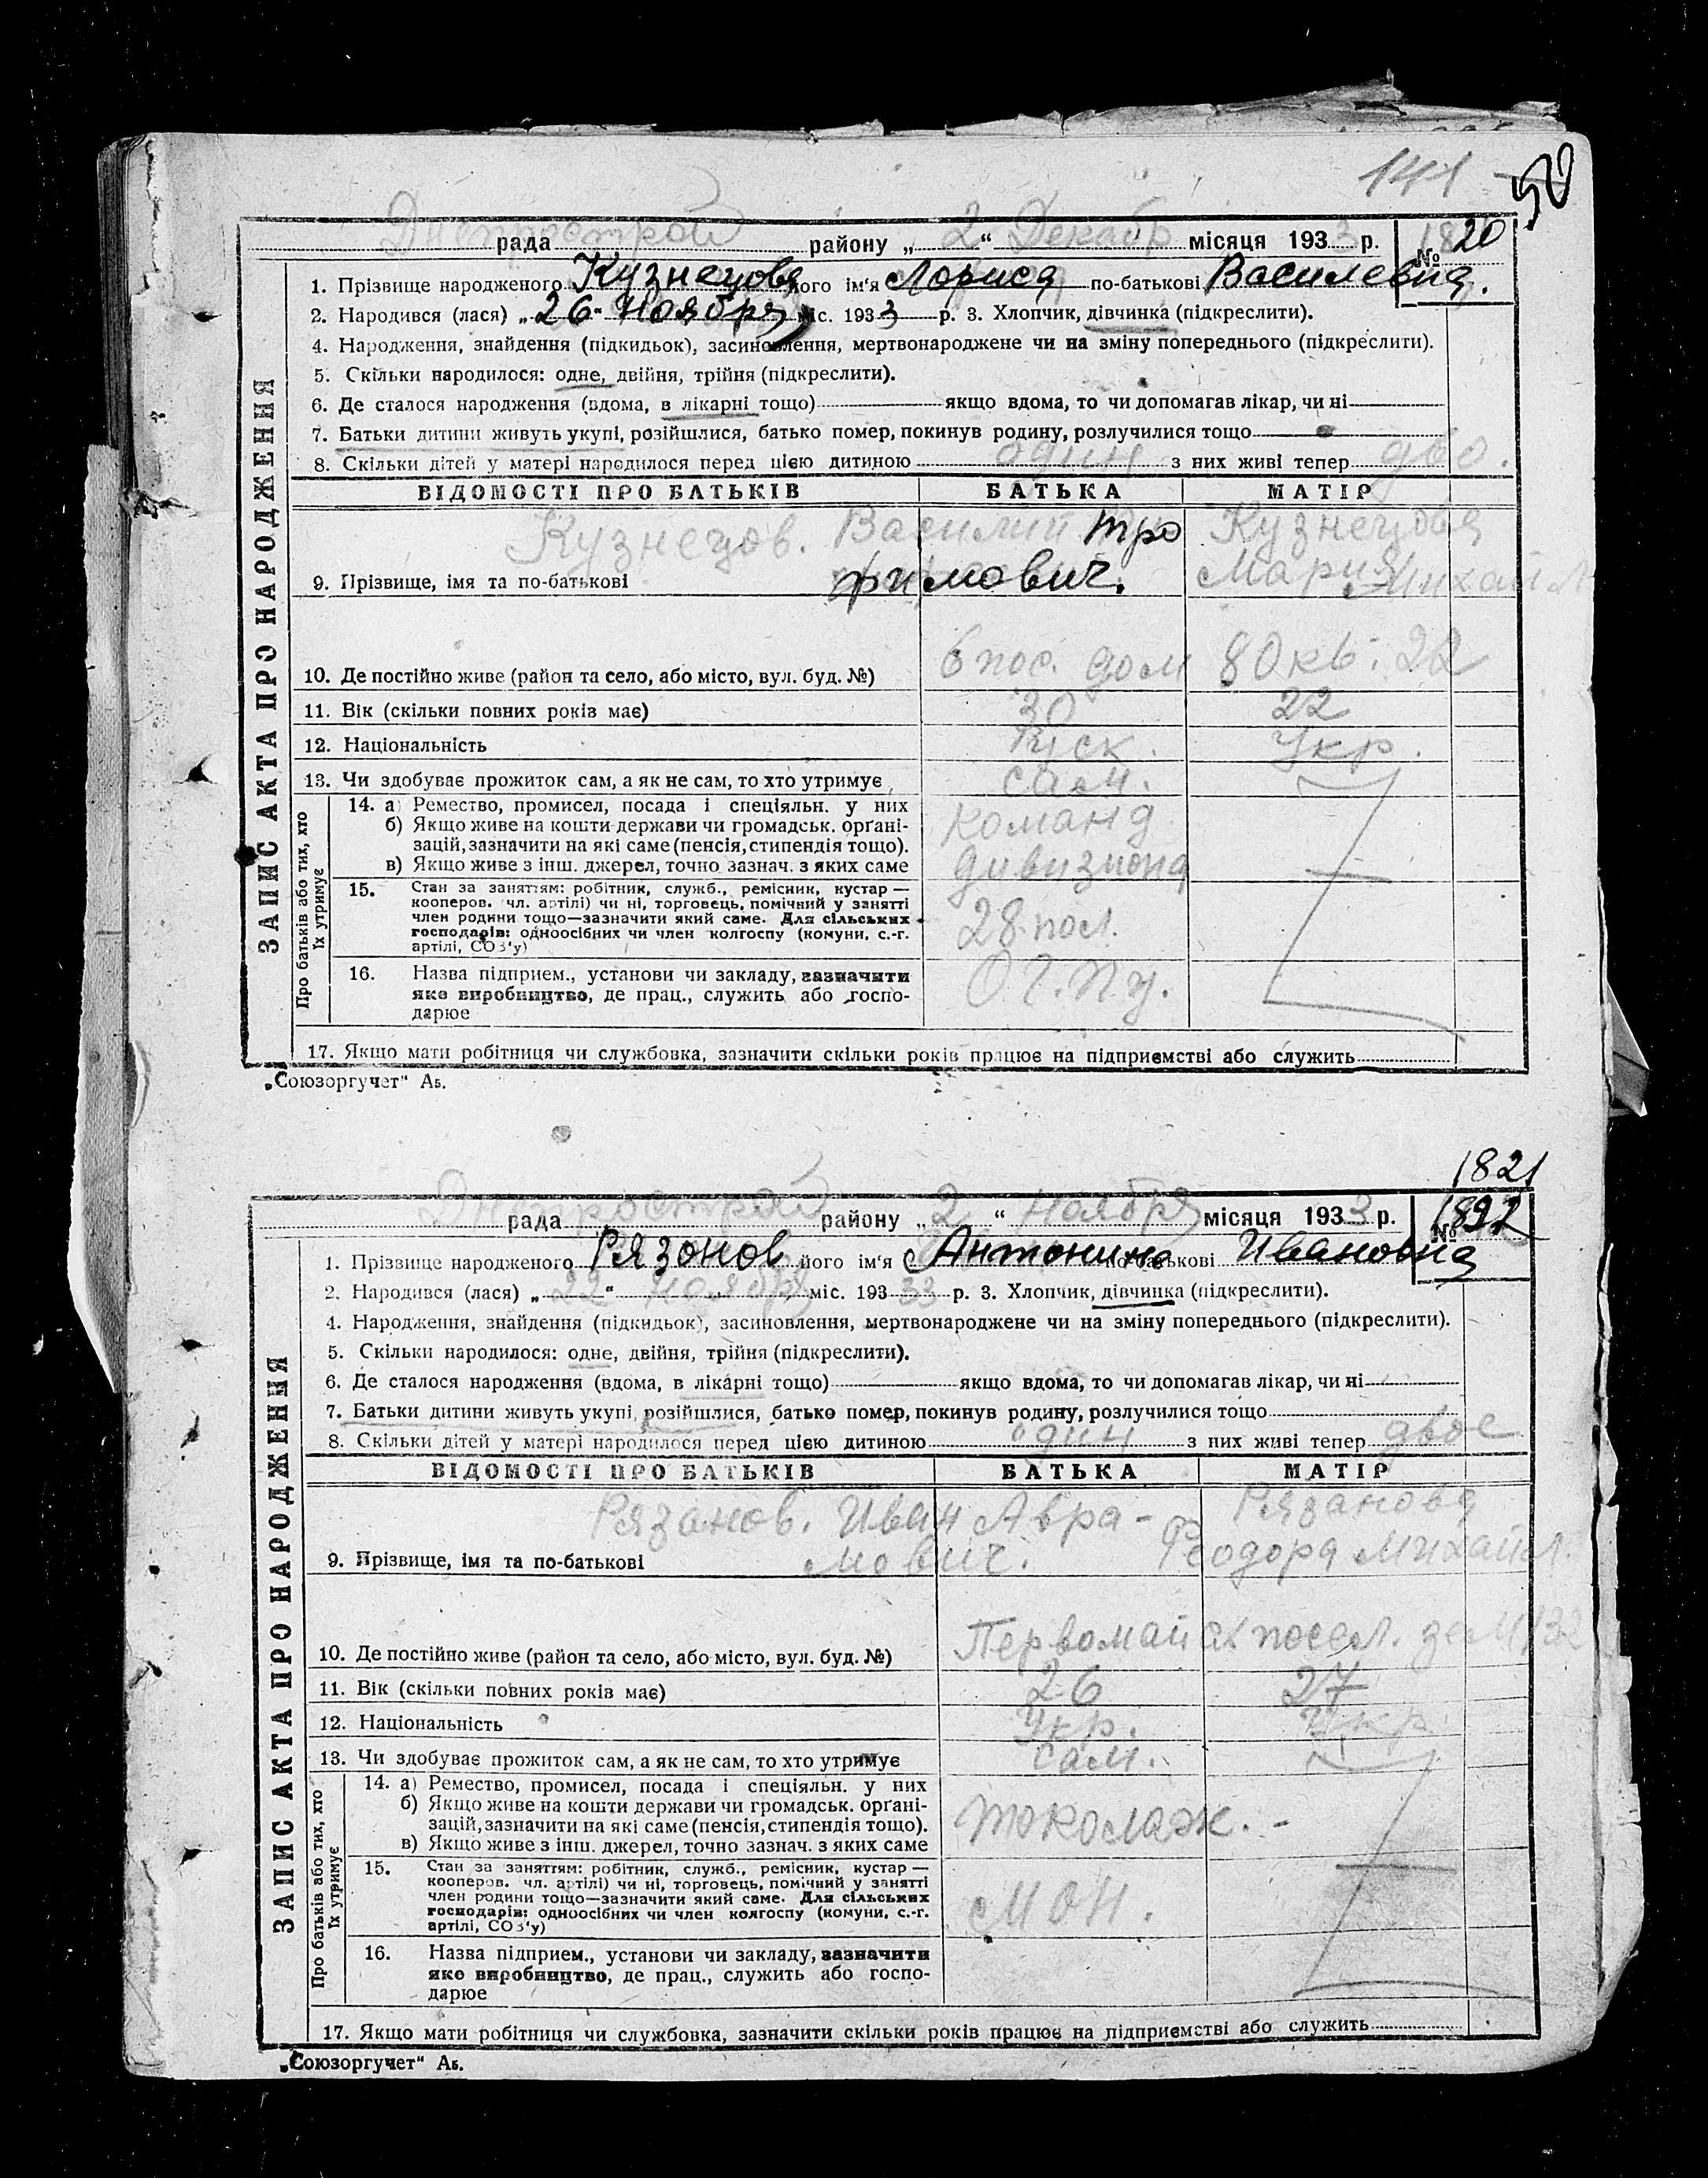 141 50
Днепрострой рада району „ 2 “ Декабр місяця 1933 р. № 1820
1. Прізвище народженого Кузнецова його ім‘я Лориса по-батькові Василевна.
2. Народився (лася) „ 26 “ Ноября міс. 1933 р. 3. Хлопчик, дівчинка (підкреслити).
4. Народження, знайдення (підкидьок), засиновлення, мертвонароджене чи на зміну попереднього (підкреслити).
5. Скільки народилося: одне, двійня, трійня (підкреслити).
6. Де сталося народження (вдома, в лікарні тощо) якщо вдома, то чи допомагав лікар, чи ні
7. Батьки дитини живуть укупі, розійшлися, батько помер, покинув родину, розлучилися тощо
8. Скільки дітей у матері народилося перед цією дитиною один з них живі тепер дво.
ВІДОМОСТІ ПРО БАТЬКІВ БАТЬКА МАТІР
Кузнецов. Василий Тро Кузнецова
9. Прізвище, імя та по-батькові фимович. Мария Михайл
10. Де постійно живе (район та село, або місто, вул. буд. №) 6 пос. дом 80 кв. 22
11. Вік (скільки повних років має) 30 22
12. Національність Руск. Укр.
13. Чи здобуває прожиток сам, а як не сам, то хто утримує сам.
ЗАПИС АКТА ПРО НАРОДЖЕННЯ
Про батьків або тих, хто
їх утримує
14. а) Ремество, промисел, посада і спеціяльн. у них команд
б) Якщо живе на кошти держави чи громадськ. орґані-
зацій, зазначити на які саме (пенсія, стипендія тощо).
в) Якщо живе з інш. джерел, точно зазнач. з яких саме дивизиона
15. Стан за заняттям: робітник, служб., ремісник, кустар —
кооперов. чл. артілі) чи ні, торговець, помічний у занятті
член родини тощо—зазначити який саме. Для сільських 28 пол.
господарів: одноосібних чи член колгоспу (комуни, с.-г.
артілі, СОЗ‘у)
16. Назва підприєм., установи чи закладу, зазначити О.Г.П.У.
яке виробництво, де прац., служить або госпо-
дарює
17. Якщо мати робітниця чи службовка, зазначити скільки років працює на підприємстві або служить
„Союзоргучет“ Аб.
1821
Днепрострой рада району „ 2 “ Ноября місяця 1933 р. №
1. Прізвище народженого Рязонов його ім‘я Антонина по-батькові Ивановна
2. Народився (лася) „ 22 “ Ноября міс. 193 33 р. 3. Хлопчик, дівчинка (підкреслити).
4. Народження, знайдення (підкидьок), засиновлення, мертвонароджене чи на зміну попереднього (підкреслити).
5. Скільки народилося: одне, двійня, трійня (підкреслити).
6. Де сталося народження (вдома, в лікарні тощо) якщо вдома, то чи допомагав лікар, чи ні
7. Батьки дитини живуть укупі, розійшлися, батько помер, покинув родину, розлучилися тощо
8. Скільки дітей у матері народилося перед цією дитиною один з них живі тепер двое
ВІДОМОСТІ ПРО БАТЬКІВ БАТЬКА МАТІР
Рязанов. Иван Авра- Рязанова
9. Прізвище, імя та по-батькові мович. Феодора Михайл.
10. Де постійно живе (район та село, або місто, вул. буд. №) Первомайск посел. зем 132
11. Вік (скільки повних років має) 26 27
12. Національність Укр. Укр
13. Чи здобуває прожиток сам, а як не сам, то хто утримує сам.
ЗАПИС АКТА ПРО НАРОДЖЕННЯ
Про батьків або тих, хто
їх утримує
14. а) Ремество, промисел, посада і спеціяльн. у них
б) Якщо живе на кошти держави чи громадськ. орґані-
зацій, зазначити на які саме (пенсія, стипендія тощо).
в) Якщо живе з інш. джерел, точно зазнач. з яких саме
15. Стан за заняттям: робітник, служб., ремісник, кустар —
кооперов. чл. артілі) чи ні, торговець, помічний у занятті
член родини тощо—зазначити який саме. Для сільських
господарів: одноосібних чи член колгоспу (комуни, с.-г.
артілі, СОЗ‘у)
16. Назва підприєм., установи чи закладу, зазначити
яке виробництво, де прац., служить або госпо-
дарює
17. Якщо мати робітниця чи службовка, зазначити скільки років працює на підприємстві або служить
„Союзоргучет“ Аб.